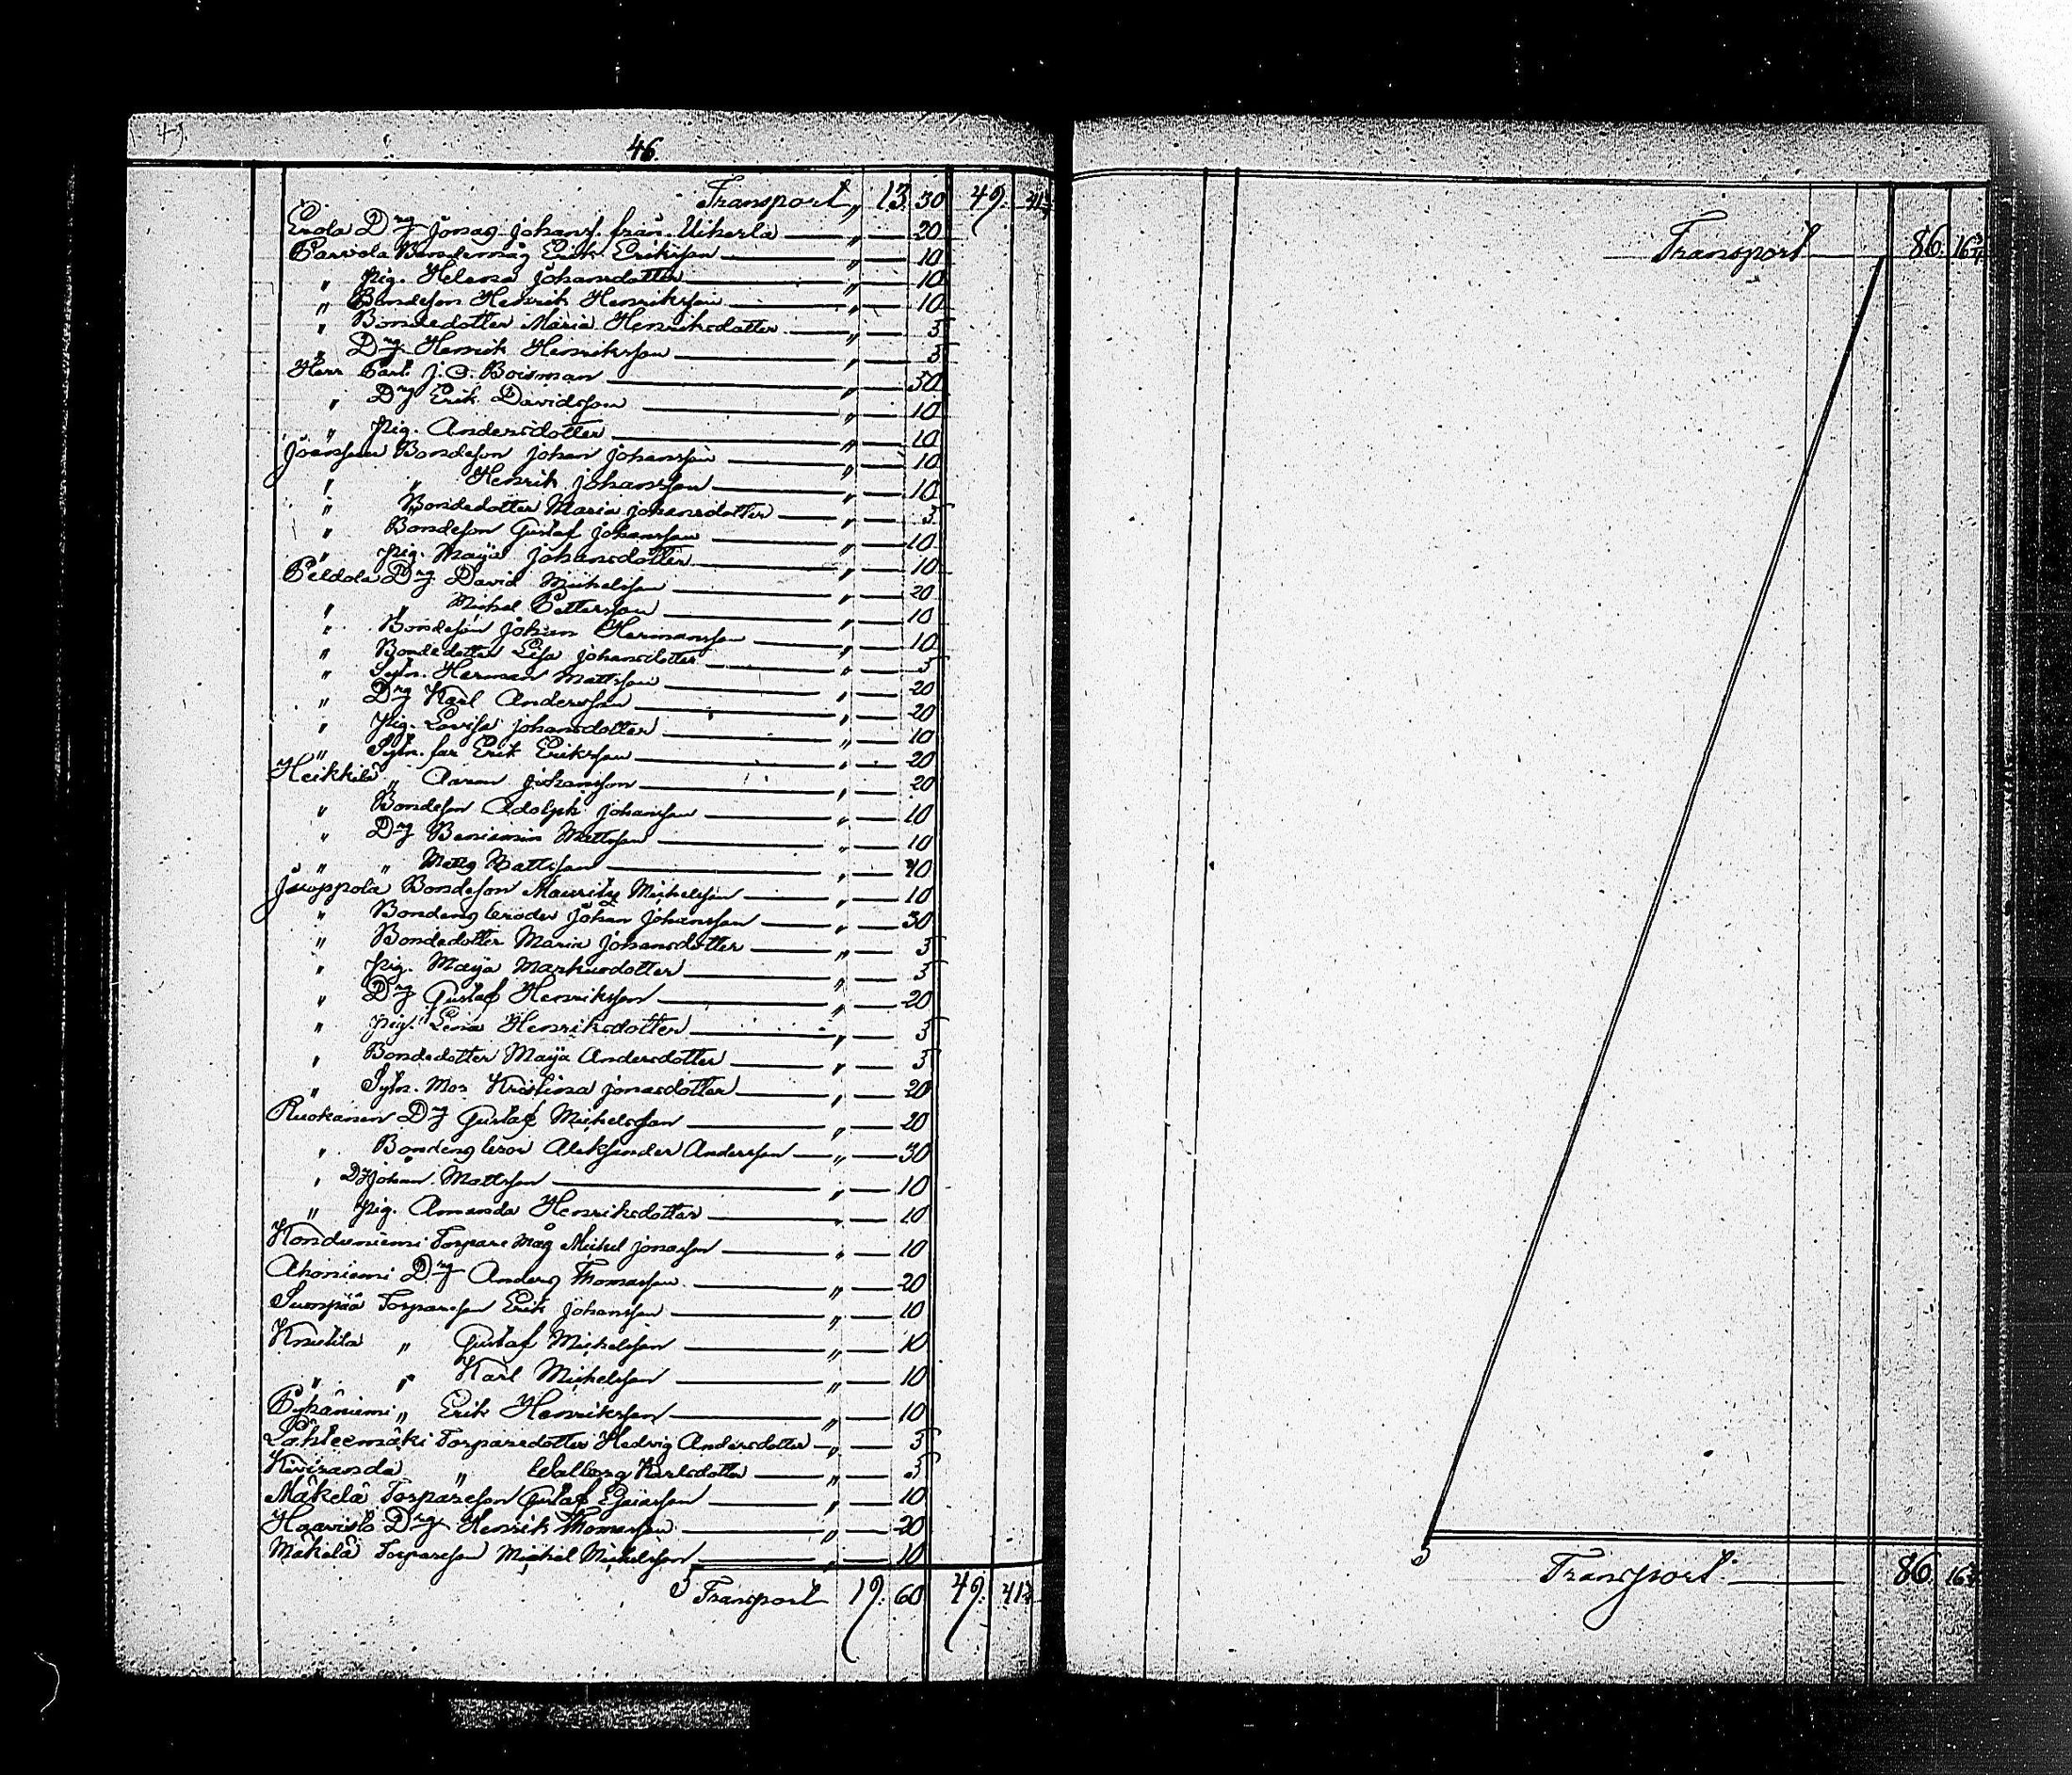 49
46.
Transport „ 13. 30 49. 41¾
Erola Drg Jonas Johanss. från Uikerla „ 20
Parvola Bondemåg Erik Eriksson „ 10
„ Pig. Helena Johansdotter „ 10
„ Bondeson Henrik Henriksson „ 10
„ Bondedotter Maria Henriksdotter „ 5
„ Drg Henrik Henriksson „ 5
Herr Carl J. Boisman „ 50
„ Drg Erik Davidsson „ 10
„ Pig. Andersdotter „ 10
Bondeson Johan Johansson „ 10
„ „ Henrik Johansson „ 10
„ Bondedotter Maria Johansdotter „ 5
„ Bondeson Gustaf Johansson „ 10
„ Pig. Maija Johansdotter „ 10
Peldola Drg David Michelsson „ 20
„ „ Michel Pettersson „ 10
„ Bondeson Johan Hermansson „ 10
„ Bondedotter Lisa Johansdotter „ 5
„ Sytn. Herman Mattsson „ 20
„ Drg Karl Andersson „ 20
„ Pig. Lovisa Johansdotter „ 10
„ Sytn. far Erik Eriksson „ 20
Heikkilä „ Aaron Johansson „ 20
„ Bondeson Adolph Johansson „ 10
„ Drg Beniamin Mattsson „ 10
„ „ Matts Mattsson „ 40
Juoppola Bondeson Mauritz Michelsson „ 10
„ Bondens broder Johan Johansson „ 30
„ Bondedotter Maria Johansdotter „ 5
„ Pig. Maija Markusdotter „ 5
„ Drg Gustaf Henriksson „ 20
„ Pig. Lena Henriksdotter „ 5
„ Bondedotter Maija Andersdotter „ 5
„ Sytn. Mor Kristina Jonasdotter „ 20
Ruokanen Drg Gustaf Michelsson „ 20
„ Bondens bror Aleksander Andersson „ 30
„ Drg Johan Mattsson „ 10
„ Pig. Amanda Henriksdotter „ 10
Konduniemi Torpare måg Michel Jonasson „ 10
Ahoniemi Drg Anders Thomasson „ 20
Suonpää Torpareson Erik Johansson „ 10
Knutila „ Gustaf Michelsson „ 10
„ „ Karl Michelsson „ 10
Pyhäniemi „ Erik Henriksson „ 10
Lähteemäki Torparedotter Hedvig Andersdotter „ 5
Kiviranda „ Walborg Karlsdotter „ 5
Mäkelä Torpareson Gustaf Esaiasson „ 10
Haavisto Drg Henrik Thomasson „ 20
Mäkelä Torpareson Michel Michelsson „ 10
Transport 19. 60 49. 41¾
Transport 86. 16¾
Transport 86. 16¾